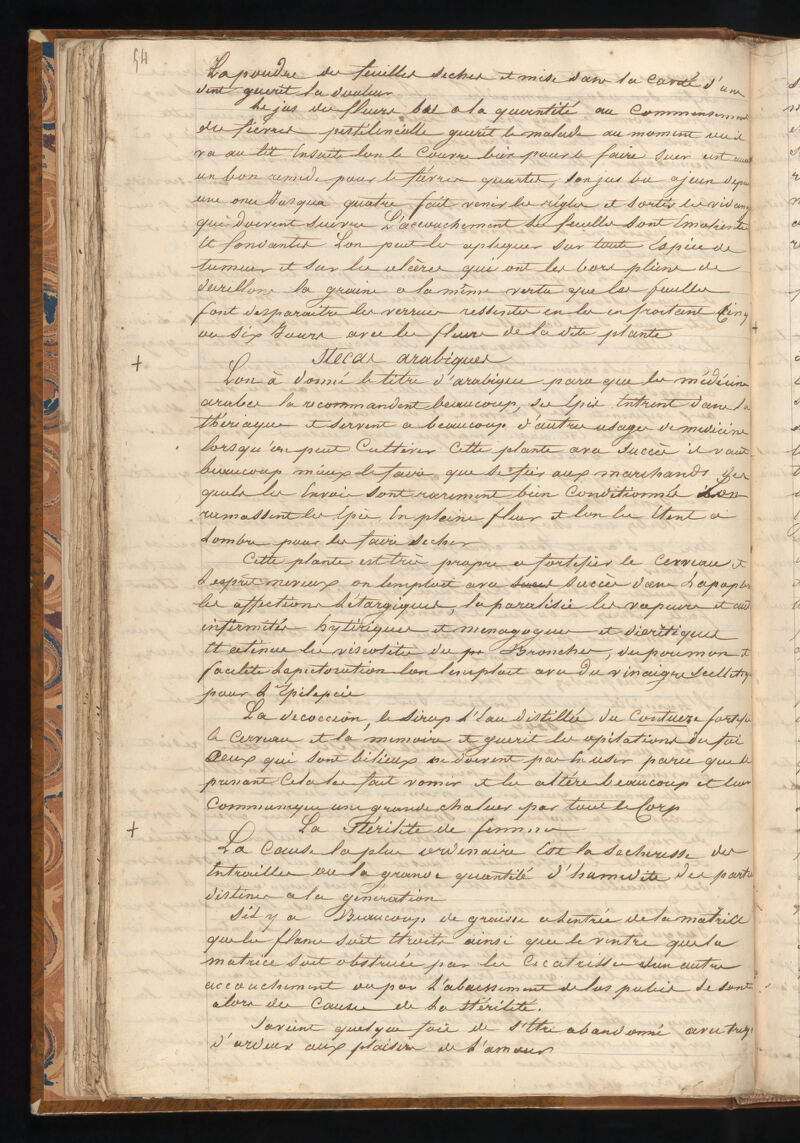 54
La poudre des feuilles seches et mise dans la carité d'une
dent guerit la douleur
Le jus des fleurs bas a la quantité au commensement
des fievres pestilencielle guerit le malade au moment
va au lit Ensuite lon le Couvre bien pour le faire suer est aussi
un bon remede pour les fievres quartes, son jus bu a jeun depuis
une onu Jusqua quatre fait venir les règles et sortir les vidang
qui doivent suivre L'accouchement les feuilles sont Emoliente
et fondantes Lon peut les apliquer sur toute Espèce de
tumeur et sur les ulcères qui ont les bors pleins de
durillons la graine a la même vertu que les feuilles
font desparaitre les verrues ressentes en les enfroitant Cinq
ou six Jours avec les fleurs de la dite plante
Stecas arabiques
Lon à donné le titre d'arabique parce que les médécins
arabes la recommandent beaucoup, ses Epis Entrent dans la
thériaque et servent a beaucoup d'autres usages de medecine
lorsqu'on peut Cultiver Cette plante avec succès il vaut
beaucoup mieux le faire que se fier aux marchands des
quels les Envois sont rarement bien Conditionnés Lon
ramassent les Epis En pleine fleur et lon les Etent a
Lombre pour les faire secher
Cette plante est très propre a fortifier le Cerveau et
Lesprit nerveux on lemploit avec succès dans Lapople
les affections Létargiques, la paralisie les vapeurs et aut
infirmités hytériques et menagogues et diérétiques
Et aténue les viscosités du Bronches, du poumon et
facilite Lapectoration lon lemploit avec du vinaigre Scellitiq
pour L'Epilepcie
La decoccion, le sirop L'eau distillée du Contueze fortifie
le Cerveau et la memoire et guerit les opilations du foi
Ceux qui sont bilieux ne doivent pas En user parce que le
prenant Cela les fait vomir et les altére beaucoup et leur
Communique une grande chaleur par tout le Corp
La Stérilité de femmes
La Cause la plus ordinaire Est la secheresse des
Entrailles ou la grande quantité d'humedité des parts
distines a la generation
Sil y a Beaucoup de graisse a lentrée de la matrice
que les flanc soit Etroits ainsi que le ventre que la
matrice soit obstruée par les Cicatrisses d'un autre
accouchement ou par L'abaissement de los pubis se sont
alors des Causes de la Stérilité.
Savient quelque fois de s'Etre abandonné avec trop
d'ardeur aux plaisirs de L'amour